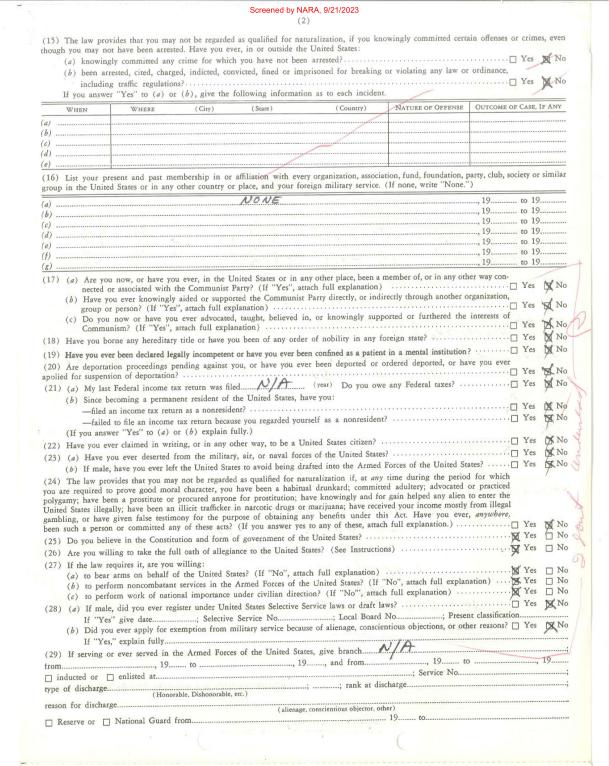 Screened by NARA, 9/21/2023
(2)
(15) The law provides that you may not be regarded as qualified for naturalization, if you knowingly committed certain offenses or crimes, even
though you may not have been arrested. Have you ever, in or outside the United States:
(a) knowingly committed any crime for which you have not been arrested? ☐ Yes ☒ No
(b) been arrested, cited, charged, indicted, convicted, fined or imprisoned for breaking or violating any law or ordinance,
including traffic regulations? ☐ Yes ☒ No
If you answer "Yes" to (a) or (b), give the following information as to each incident.
WHEN WHERE (City) (State) (Country) NATURE OF OFFENSE OUTCOME OF CASE, IF ANY
(a)
(b)
(c)
(d)
(e)
(16) List your present and past membership in or affiliation with every organization, association, fund, foundation, party, club, society or similar
group in the United States or in any other country or place, and your foreign military service. (If none, write "None.")
(a) NONE , 19 to 19
(b) , 19 to 19
(c) , 19 to 19
(d) , 19 to 19
(e) , 19 to 19
(f) , 19 to 19
(g) , 19 to 19
(17) (a) Are you now, or have you ever, in the United States or in any other place, been a member of, or in any other way con-
nected or associated with the Communist Party? (If "Yes", attach full explanation) ☐ Yes ☒ No
(b) Have you ever knowingly aided or supported the Communist Party directly, or indirectly through another organization,
group or person? (If "Yes", attach full explanation) ☐ Yes ☒ No
(c) Do you now or have you ever advocated, taught, believed in, or knowingly supported or furthered the interests of
Communism? (If "Yes", attach full explanation) ☐ Yes ☒ No
(18) Have you borne any hereditary title or have you been of any order of nobility in any foreign state? ☐ Yes ☒ No
(19) Have you ever been declared legally incompetent or have you ever been confined as a patient in a mental institution? ☐ Yes ☒ No
(20) Are deportation proceedings pending against you, or have you ever been deported or ordered deported, or have you ever
applied for suspension of deportation? ☐ Yes ☒ No
(21) (a) My last Federal income tax return was filed N/A (year) Do you owe any Federal taxes? ☐ Yes ☒ No
(b) Since becoming a permanent resident of the United States, have you:
—filed an income tax return as a nonresident? ☐ Yes ☒ No
—failed to file an income tax return because you regarded yourself as a nonresident? ☐ Yes ☒ No
(If you answer "Yes" to (a) or (b) explain fully.)
(22) Have you ever claimed in writing, or in any other way, to be a United States citizen? ☐ Yes ☒ No
(23) (a) Have you ever deserted from the military, air, or naval forces of the United States? ☐ Yes ☒ No
(b) If male, have you ever left the United States to avoid being drafted into the Armed Forces of the United States? ☐ Yes ☒ No
(24) The law provides that you may not be regarded as qualified for naturalization if, at any time during the period for which
you are required to prove good moral character, you have been a habitual drunkard; committed adultery; advocated or practiced
polygamy; have been a prostitute or procured anyone for prostitution; have knowingly and for gain helped any alien to enter the
United States illegally; have been an illicit trafficker in narcotic drugs or marijuana; have received your income mostly from illegal
gambling, or have given false testimony for the purpose of obtaining any benefits under this Act. Have you ever, anywhere,
been such a person or committed any of these acts? (If you answer yes to any of these, attach full explanation.) ☐ Yes ☒ No
(25) Do you believe in the Constitution and form of government of the United States? ☒ Yes ☐ No
(26) Are you willing to take the full oath of allegiance to the United States? (See Instructions) ☒ Yes ☐ No
(27) If the law requires it, are you willing:
(a) to bear arms on behalf of the United States? (If "No", attach full explanation) ☒ Yes ☐ No
(b) to perform noncombatant services in the Armed Forces of the United States? (If "No", attach full explanation) ☒ Yes ☐ No
(c) to perform work of national importance under civilian direction? (If "No", attach full explanation) ☒ Yes ☐ No
(28) (a) If male, did you ever register under United States Selective Service laws or draft laws? ☐ Yes ☒ No
If "Yes" give date ; Selective Service No. ; Local Board No. ; Present classification
(b) Did you ever apply for exemption from military service because of alienage, conscientious objections, or other reasons? ☐ Yes ☒ No
If "Yes," explain fully
(29) If serving or ever served in the Armed Forces of the United States, give branch N/A ;
from , 19 to , 19 , and from , 19 to , 19 ;
☐ inducted or ☐ enlisted at ; Service No. ;
type of discharge ; rank at discharge ;
(Honorable, Dishonorable, etc.)
reason for discharge
(alienage, conscientious objector, other)
☐ Reserve or ☐ National Guard from 19 to